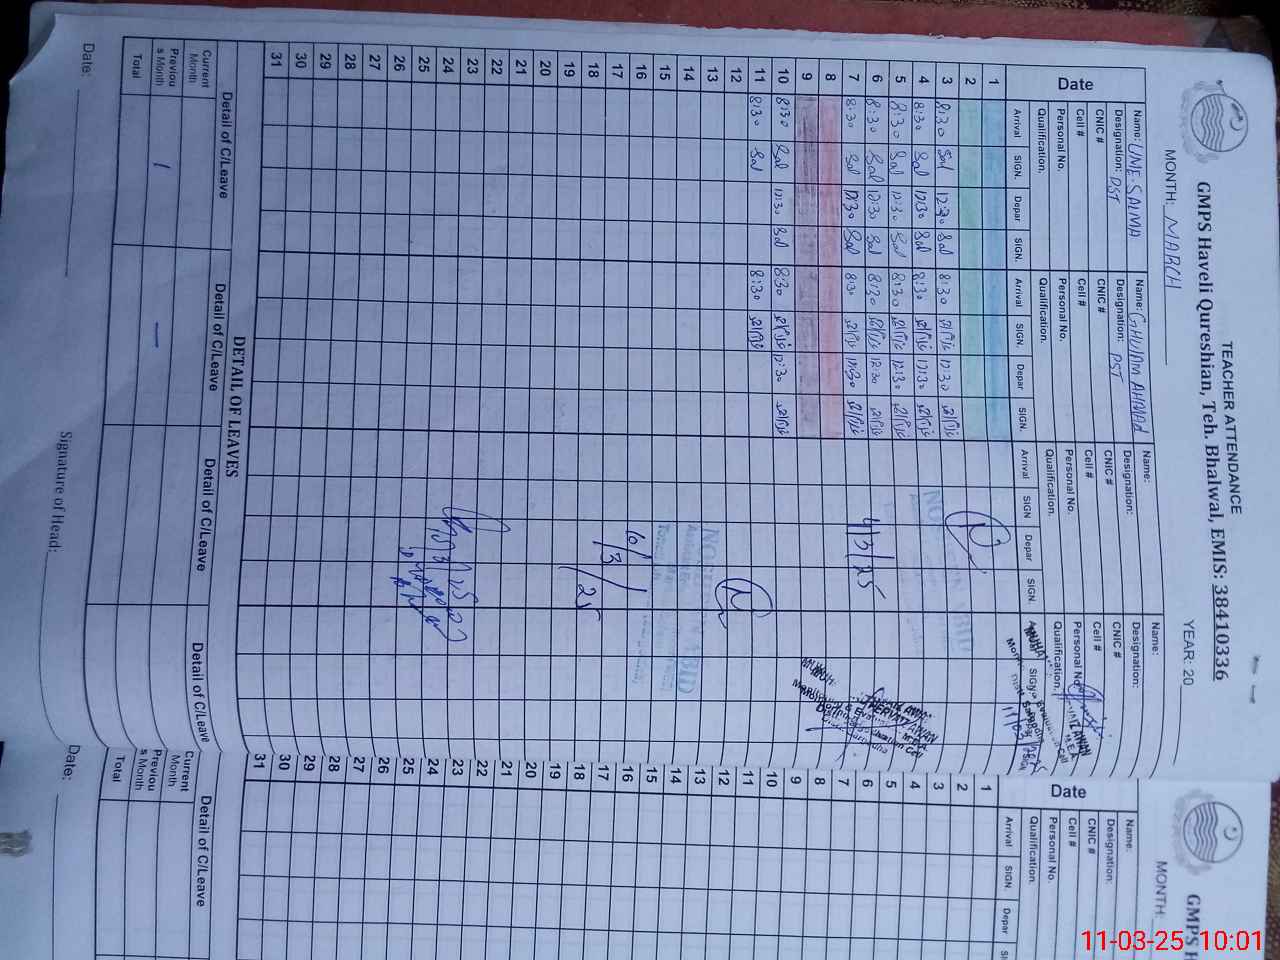 TEACHER ATTENDANCE
GMPS Haveli Qureshian, Teh. Bhalwal, EMIS: 38410336
MONTH: MARCH YEAR: 20
Date
Name: UME-SALMA Name: GHULAM AHMAD Name: Name:
Designation: PST Designation: PST Designation: Designation:
CNIC # CNIC # CNIC # CNIC #
Cell # Cell # Cell # Cell #
Personal No. Personal No. Personal No. Personal No.
Qualification. Qualification. Qualification. Qualification.
Arrival SIGN. Depar SIGN. Arrival SIGN. Depar SIGN. Arrival SIGN Depar SIGN.
1
2
3 8:30 Sal 12:30 Sal 8:30 12:30
4 8:30 Sal 12:30 Sal 8:30 12:30
5 8:30 Sal 12:30 Sal 8:30 12:30
6 8:30 Sal 12:30 Sal 8:30 12:30
7 8:30 Sal 12:30 Sal 8:30 12:30
8
9
10 8:30 Sal 12:30 Sal 8:30 12:30
11 8:30 Sal 8:30
12
13
14
15
16
17
18
19
20
21
22
23
24
25
26
27
28
29
30
31
4/3/25
10/3/25
11/03/2025
DETAIL OF LEAVES
Detail of C/Leave Detail of C/Leave Detail of C/Leave Detail of C/Leave
Current Month
Previous Month 1 —
Total
Date: Signature of Head:
GMPS H
MONTH:
Date
Name:
Designation:
CNIC #
Cell #
Personal No.
Qualification.
Arrival SIGN. Depar
1
2
3
4
5
6
7
8
9
10
11
12
13
14
15
16
17
18
19
20
21
22
23
24
25
26
27
28
29
30
31
Detail of C/Leave
Current Month
Previous Month
Total
Date:
11-03-25 10:01